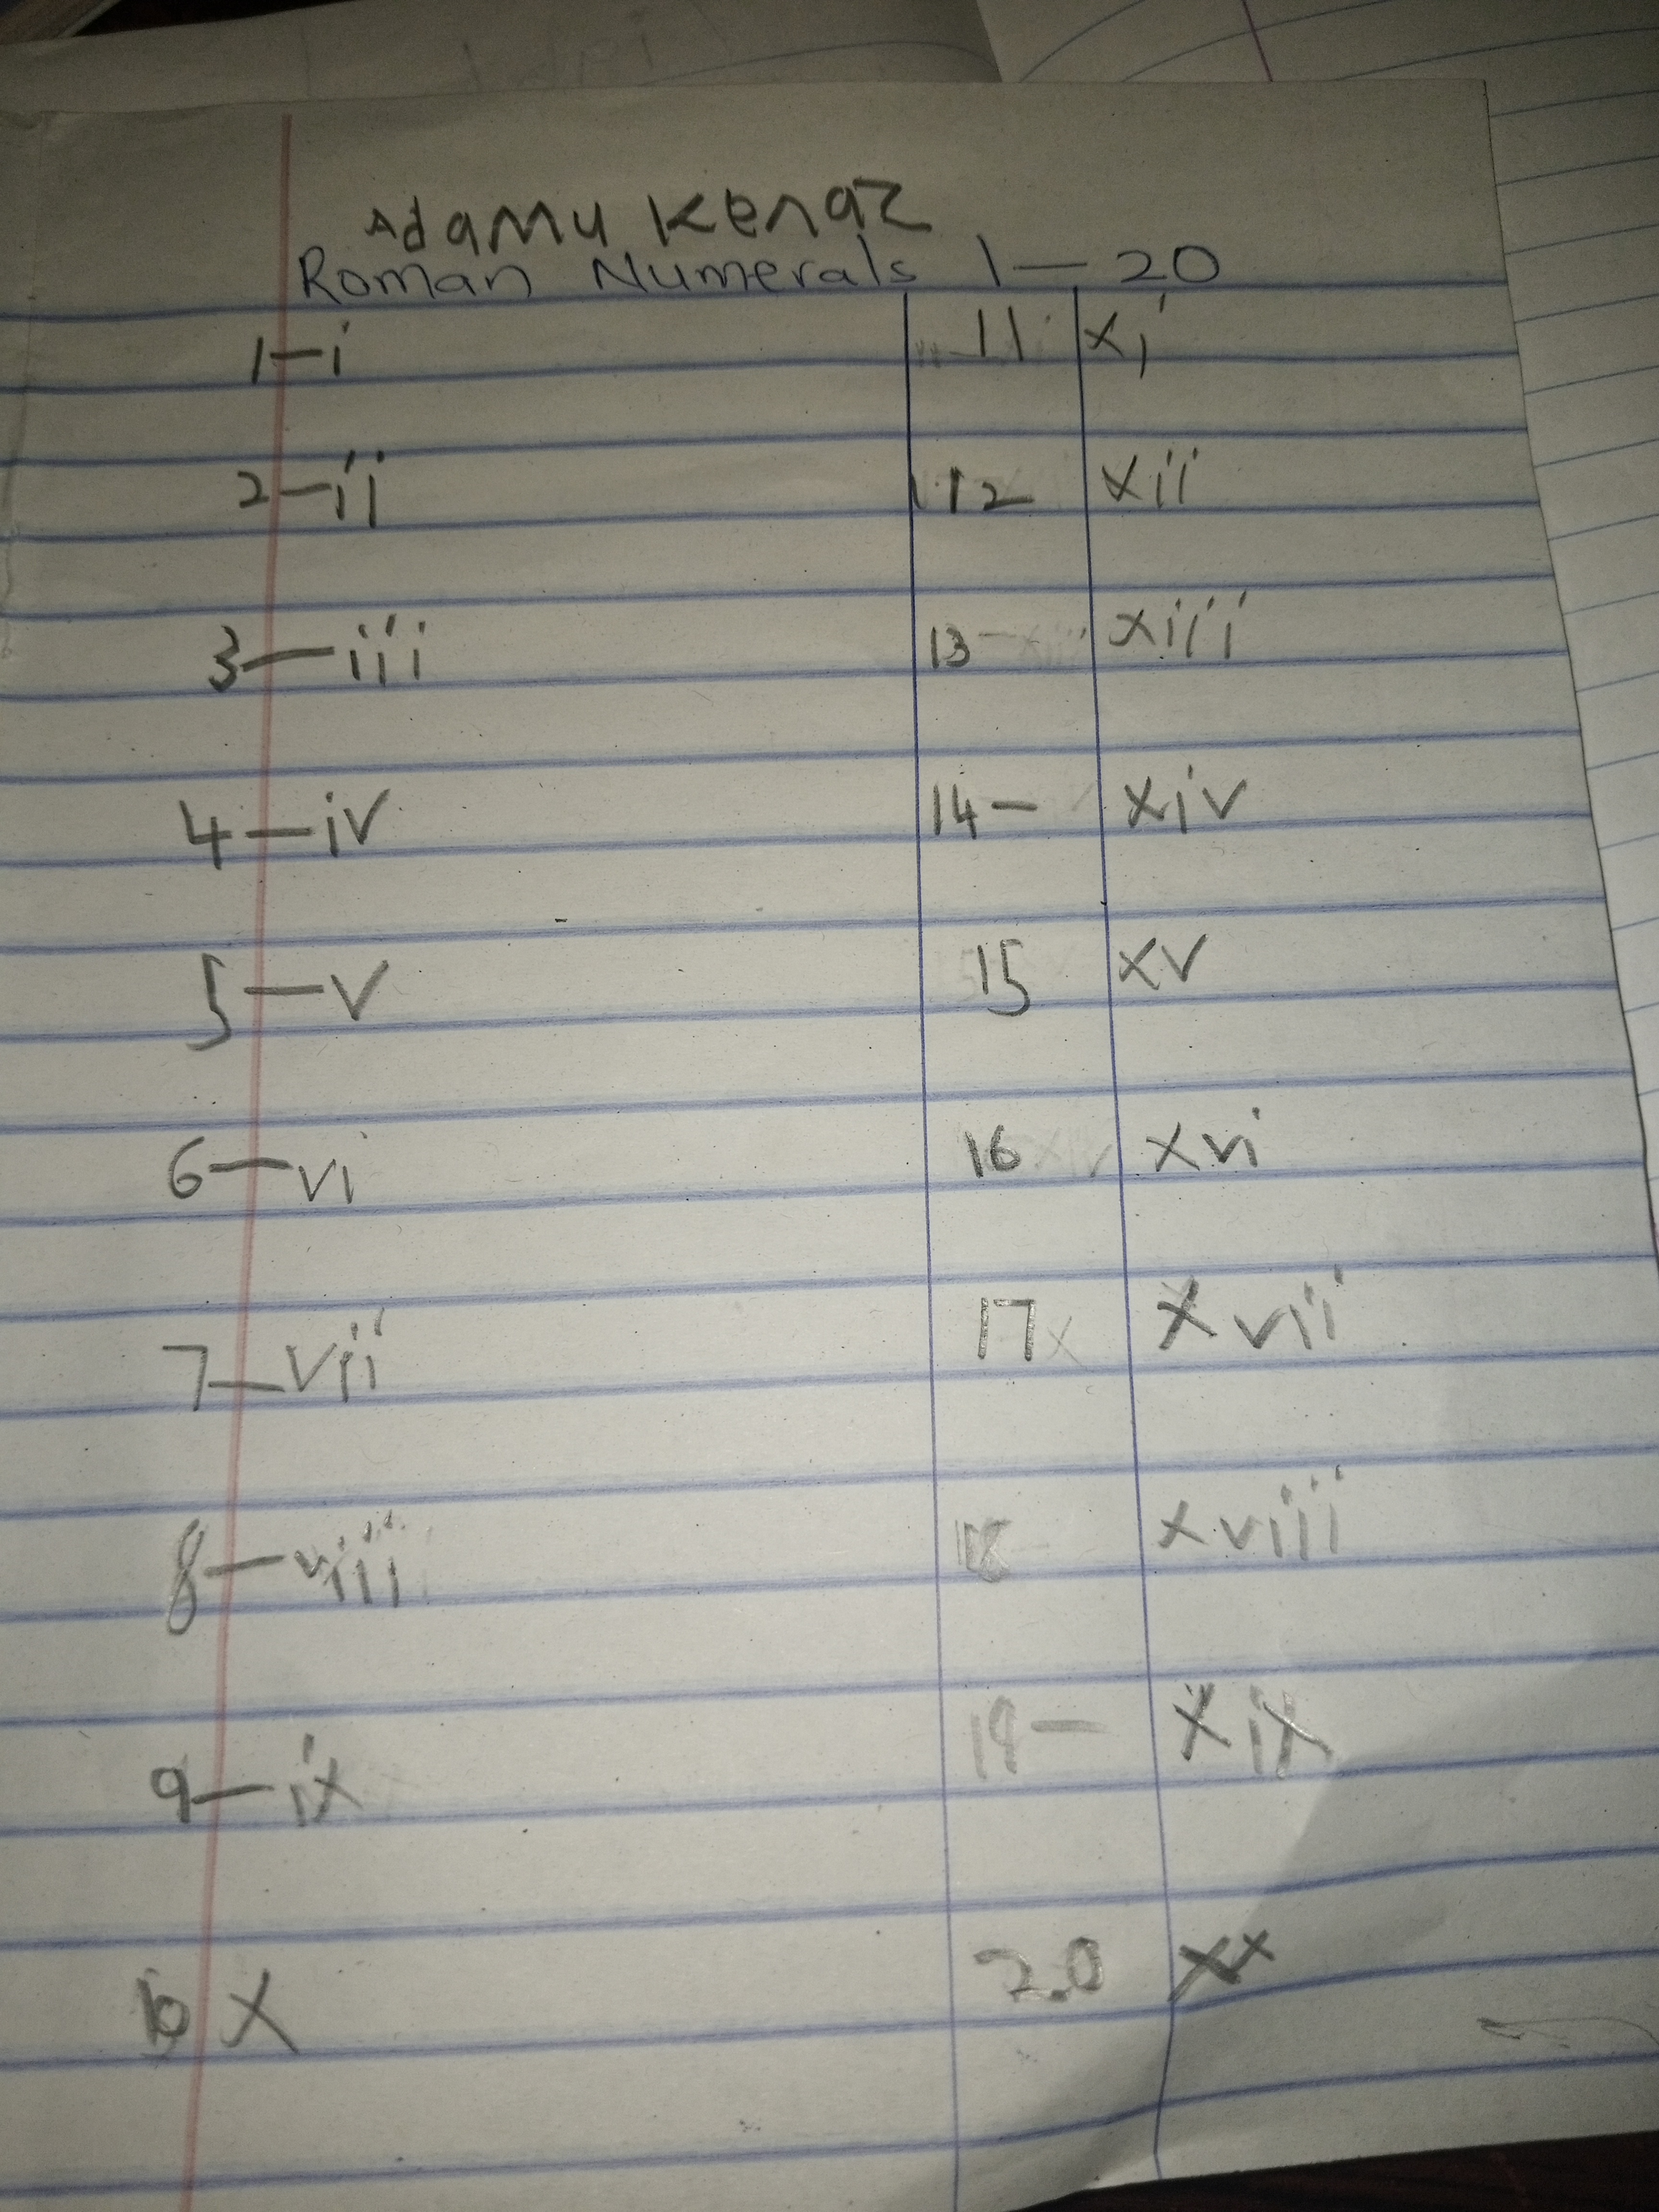 Adamu Kenaz
Roman Numerals 1 — 20
1 — i
2 — ii
3 — iii
4 — iv
5 — v
6 — vi
7 — vii
8 — viii
9 — ix
10 x
11 xi
12 xii
13 xiii
14 — xiv
15 xv
16 xvi
17 xvii
18 xviii
19 — xix
2.0 xx